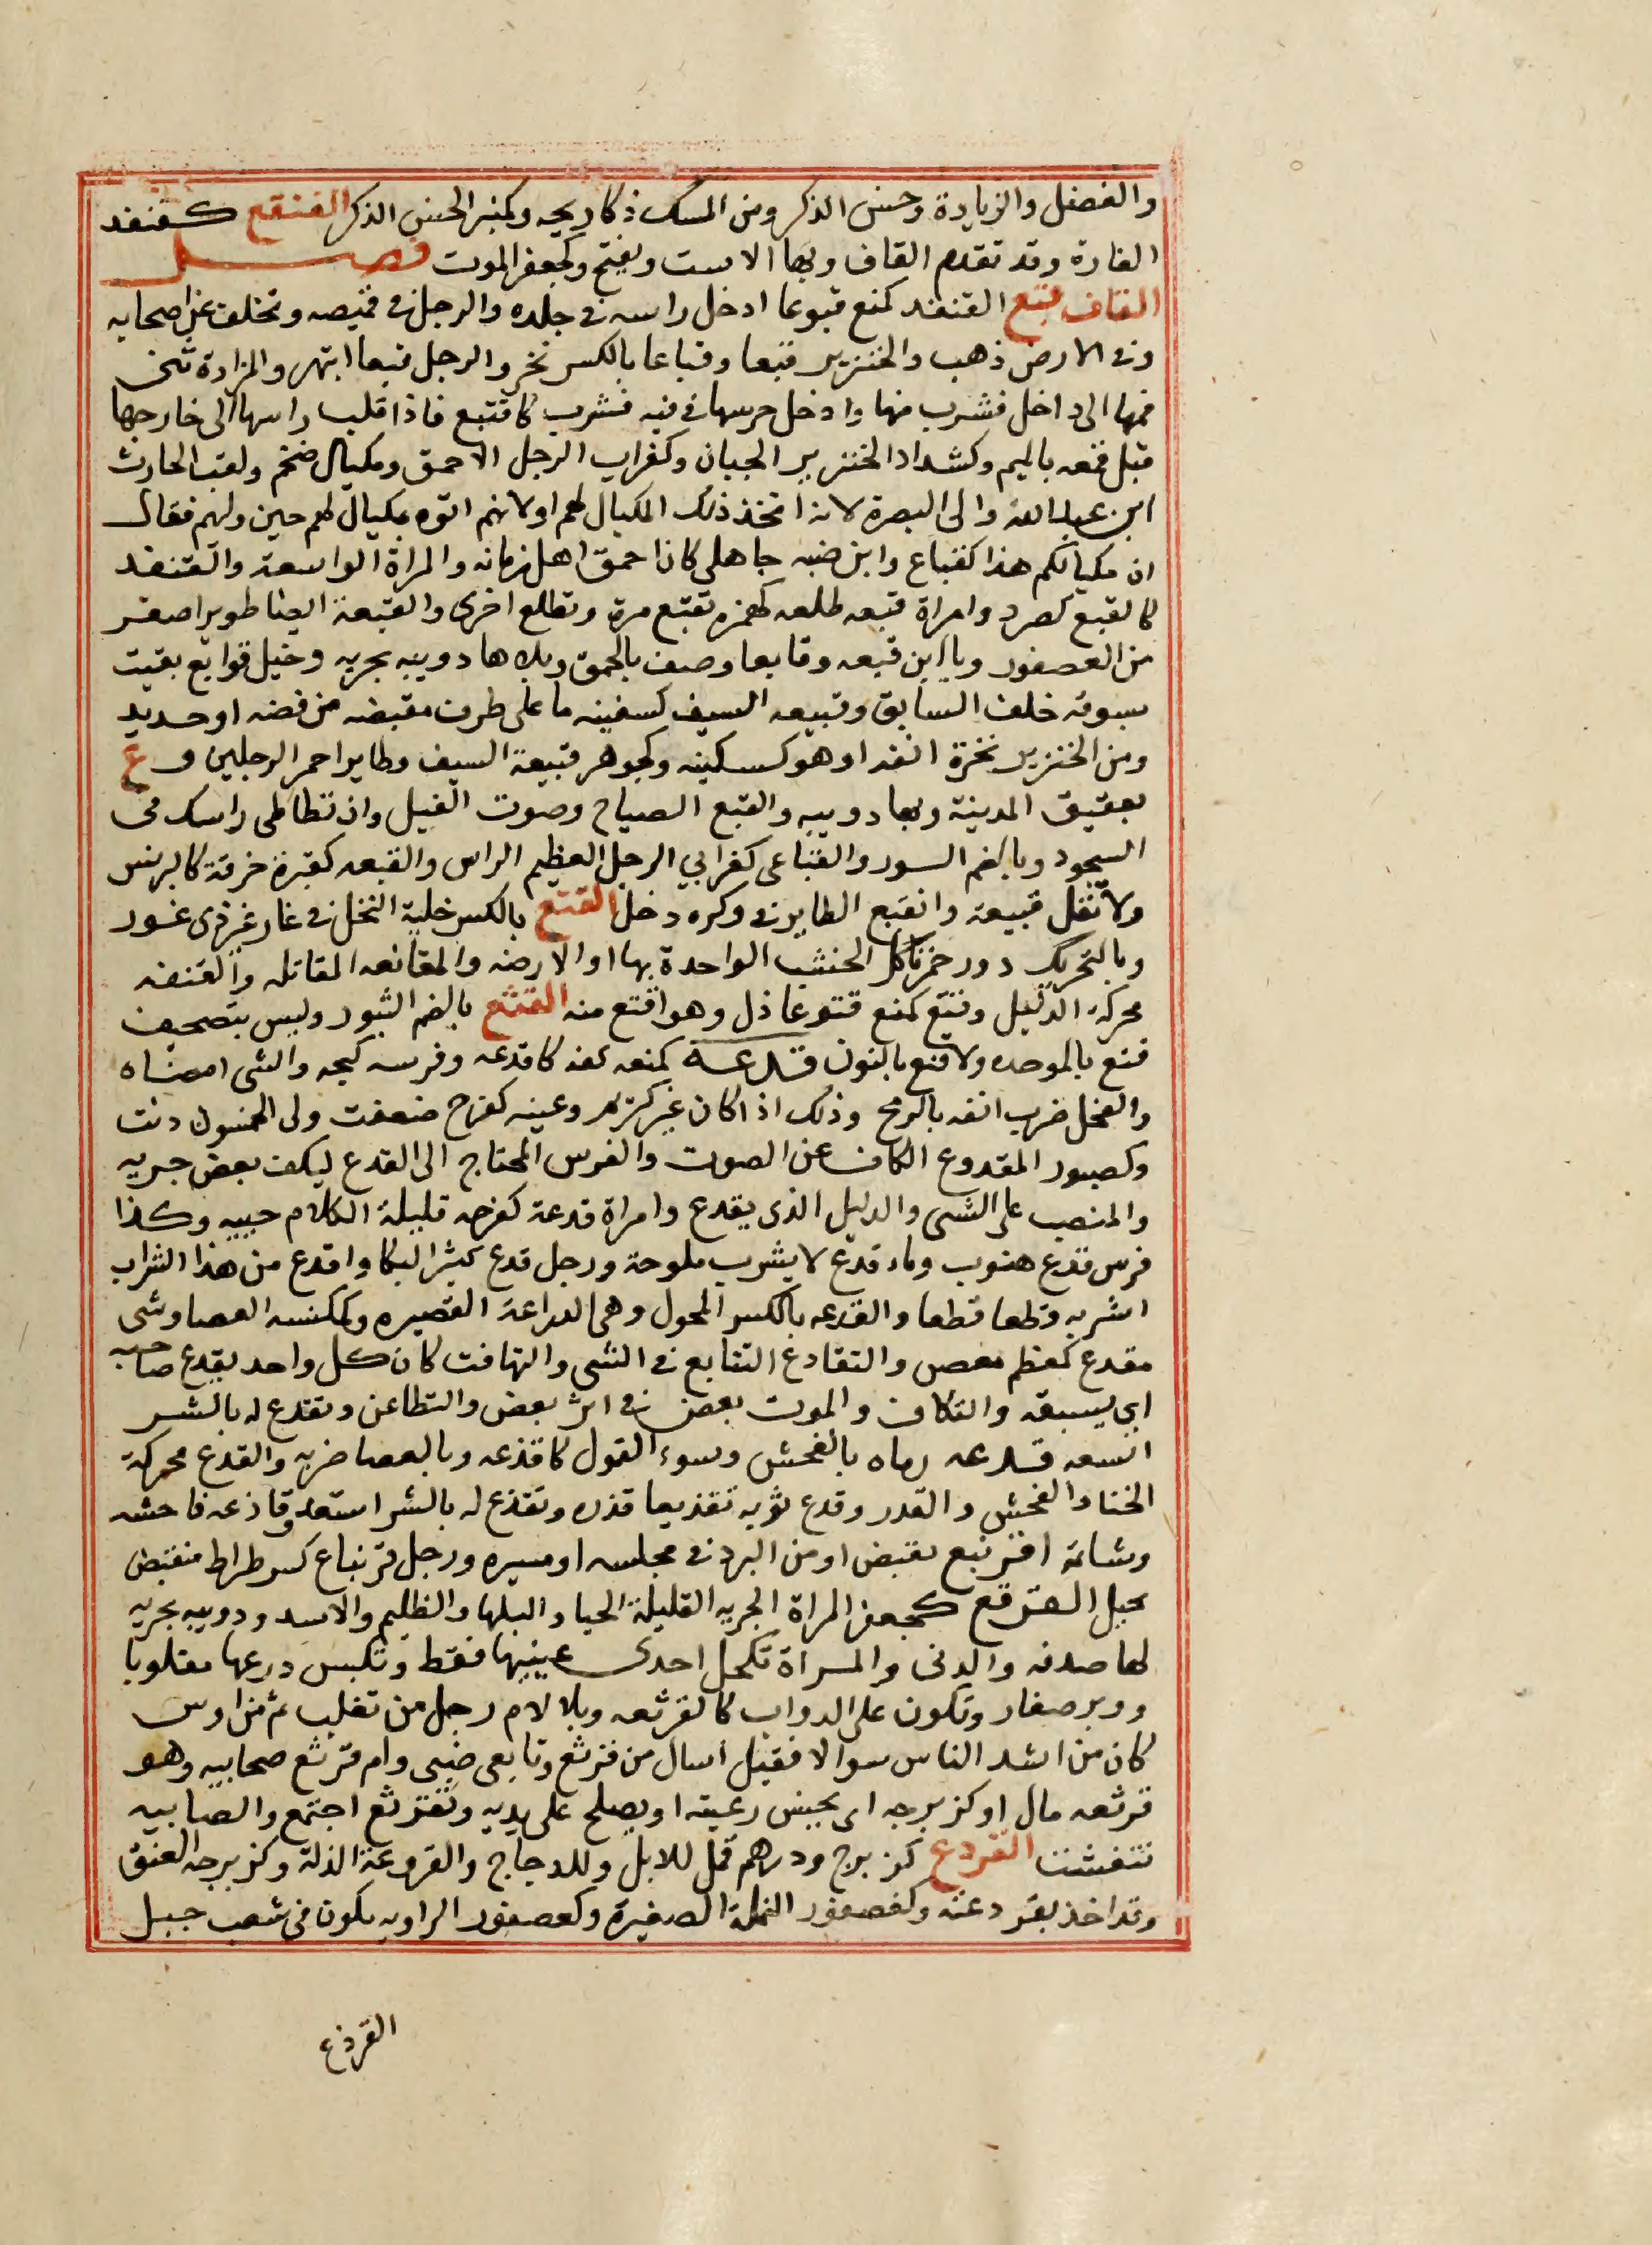 والفضل والزيادة وحسن الذكر ومن المسك ذكا ريحه وكمنبر الحسن الذكر الفنقع كقنفذ
الفارة وقد تقدم القاف وبها الاست ويفتح وكجعفر الموت فصل
القاف قبع القنفذ كمنع قبوعا ادخل راسه في جلده والرجل في قميصه وتخلف عن اصحابه
وفي الارض ذهب والخنزير قبعا وقباعا بالكسر نخر والرجل قبعا ابتهر والمزادة ثنى
فمها الى داخل فشرب منها وادخل خرسها في فيه فشرب كاقتبع فاذا قلب راسها الى خارجها
قيل قمعه بالميم وكشداد الخنزير الجبان وكغراب الرجل الاحمق ومكيال ضخم ولقب الحارث
ابن عبد الله والى البصرة لانه اتخذ ذلك المكيال لهم او لانهم اتوه بمكيال لهم حين وليهم فقال
ان مكيالكم هذا لقباع وابن ضبه جاهلى كان احمق اهل زمانه والمراة الواسعة والقنفذ
كالقبع كصرد وامراة قبعه طلعه كهمزه تقبع مرة وتطلع اخرى والقبعة ايضا طوير اصغر
من العصفور ويا ابن قبعه وقابعا وصف بالحمق وبلا ها دويبه بحريه وخيل قوابع بقيت
سبوقه خلف السابق وقبيعه السيف كسفينه ما على طرف مقبضه من فضه او حديد
ومن الخنزير نخرة انفه او هو كسكينه وكجوهر قبيعة السيف وطاير احمر الرجلين و ع
بعقيق المدينة وبها دويبه والقبع الصياح وصوت الفيل وان تطاطى راسك فى
السجود وبالضم السور والقباعى كغرابي الرجل العظيم الراس والقبعه كقبرة خرقة كالبرنس
ولا تقل قبيعة وانقبع الطاير في وكره دخل القتع بالكسر خلية النخل في غار غير ذى غور
وبالتحريك دود حمر تاكل الخشب الواحدة بها او الارضه والمقاتعه المقاتله والقتعه
محركة الذليل وقتع كمنع قتوعا ذل وهو اقتع منه القثع بالضم الشبور وليس بتصحيف
قبع بالموحده ولا قنع بالنون قدعه كمنعه كفه كاقدعه وفرسه كبحه والشى امضاه
والفحل ضرب انفه بالرمح وذلك اذا كان غير كريم وعينه كفرح ضعفت ولى الخمسون دنت
وكصبور المقدوع الكاف عن الصوت والفرس المحتاج الى القدع ليكف بعض جريه
والمنصب على الشى والدليل الذى يقدع وامراة قدعة كفرحه قليلة الكلام حييه وكذا
فرس قدع هيوب وماء قدع لا يشرب ملوحة ورجل قدع كثير البكا واقدع من هذا الشراب
اشربه قطعا قطعا والقدعه بالكسر المجول وهى الدراعة القصيره وكمكنسه العصا وشى
مقدع كمعظم مغصص والتقادع التتابع في الشى والتهافت كان كل واحد يقدع صاحبه
اي يسبقه والتكاف والموت بعض في اثر بعض والتطاعن وتقدع له بالشر
اتسعه قذعه رماه بالفحش وسوء القول كاقذعه وبالعصا ضربه والقذع محركة
الخنا والفحش والقذر وقذع ثوبه تقذيعا قذره وتقذع له بالشر استعد وقاذعه فاحشه
وشاتمه اقرنبع تقبض او من البرد في مجلسه او مسيره ورجل قرنباع كسرطراط منقبض
بخيل القرثع كجعفر المراة الجريه القليلة الحيا والبلها والظليم والاسد ودويبه بحريه
لها صدفه والدنى والمراة تكحل احدى عينيها فقط وتلبس درعها مقلوبا
ووبر صغار وتكون على الدواب كالقرثعه وبلا لام رجل من تغلب ثم من اوس
كان من اشد الناس سوالا فقيل اسال من قرثع وتابعى ضبى وام قرثع صحابيه وهو
قرثعه مال او كزبرجه اى يحسن رعيته او يصلح على يديه وتقرثع اجتمع والصابيه
تنفشت القردع كزبرج ودرهم قمل للابل وللدجاج والقردعة الذلة وكزبرجه العنق
وقد اخذ بقردعته وكعصفور النملة الصغيرة وكعصفور الراويه يكون فى شعب جبل
القرذع